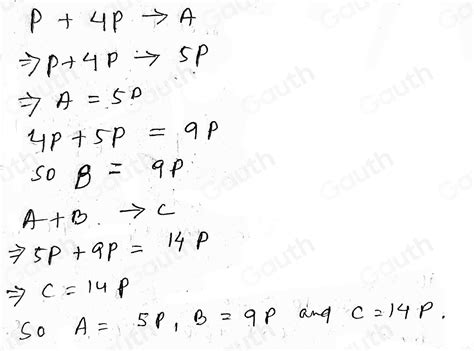 P + 4P → A
⇒ P + 4P → 5P
⇒ A = 5P
4P + 5P = 9P
so B = 9P
A + B. → C
⇒ 5P + 9P = 14P
⇒ C = 14P
So A = 5P, B = 9P and C = 14P.